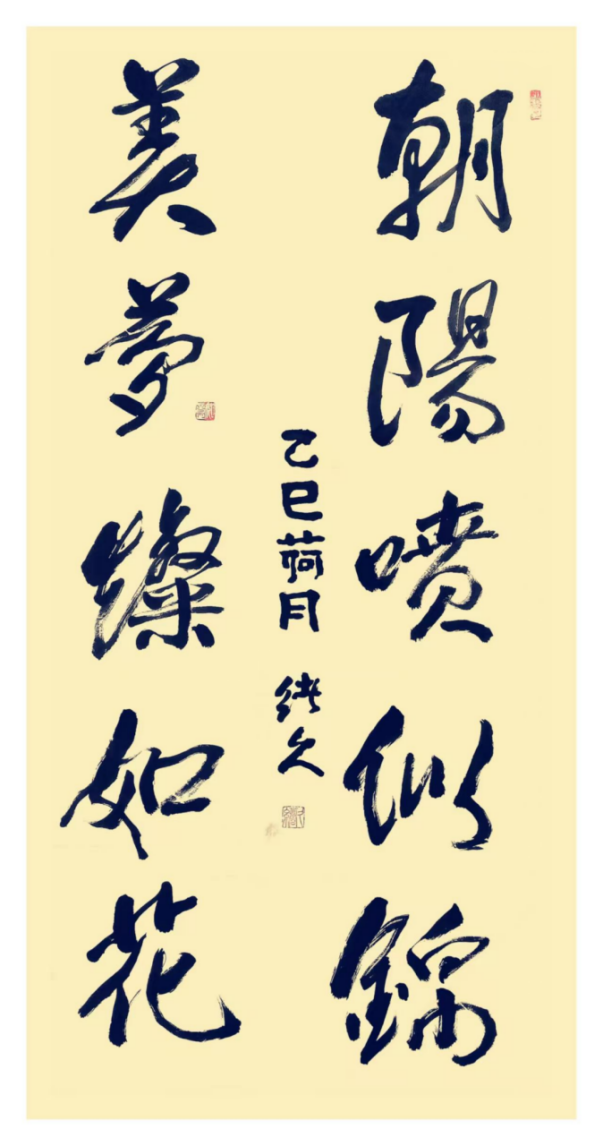 朝陽噴似錦
美夢燦如花
乙巳荷月 緒久